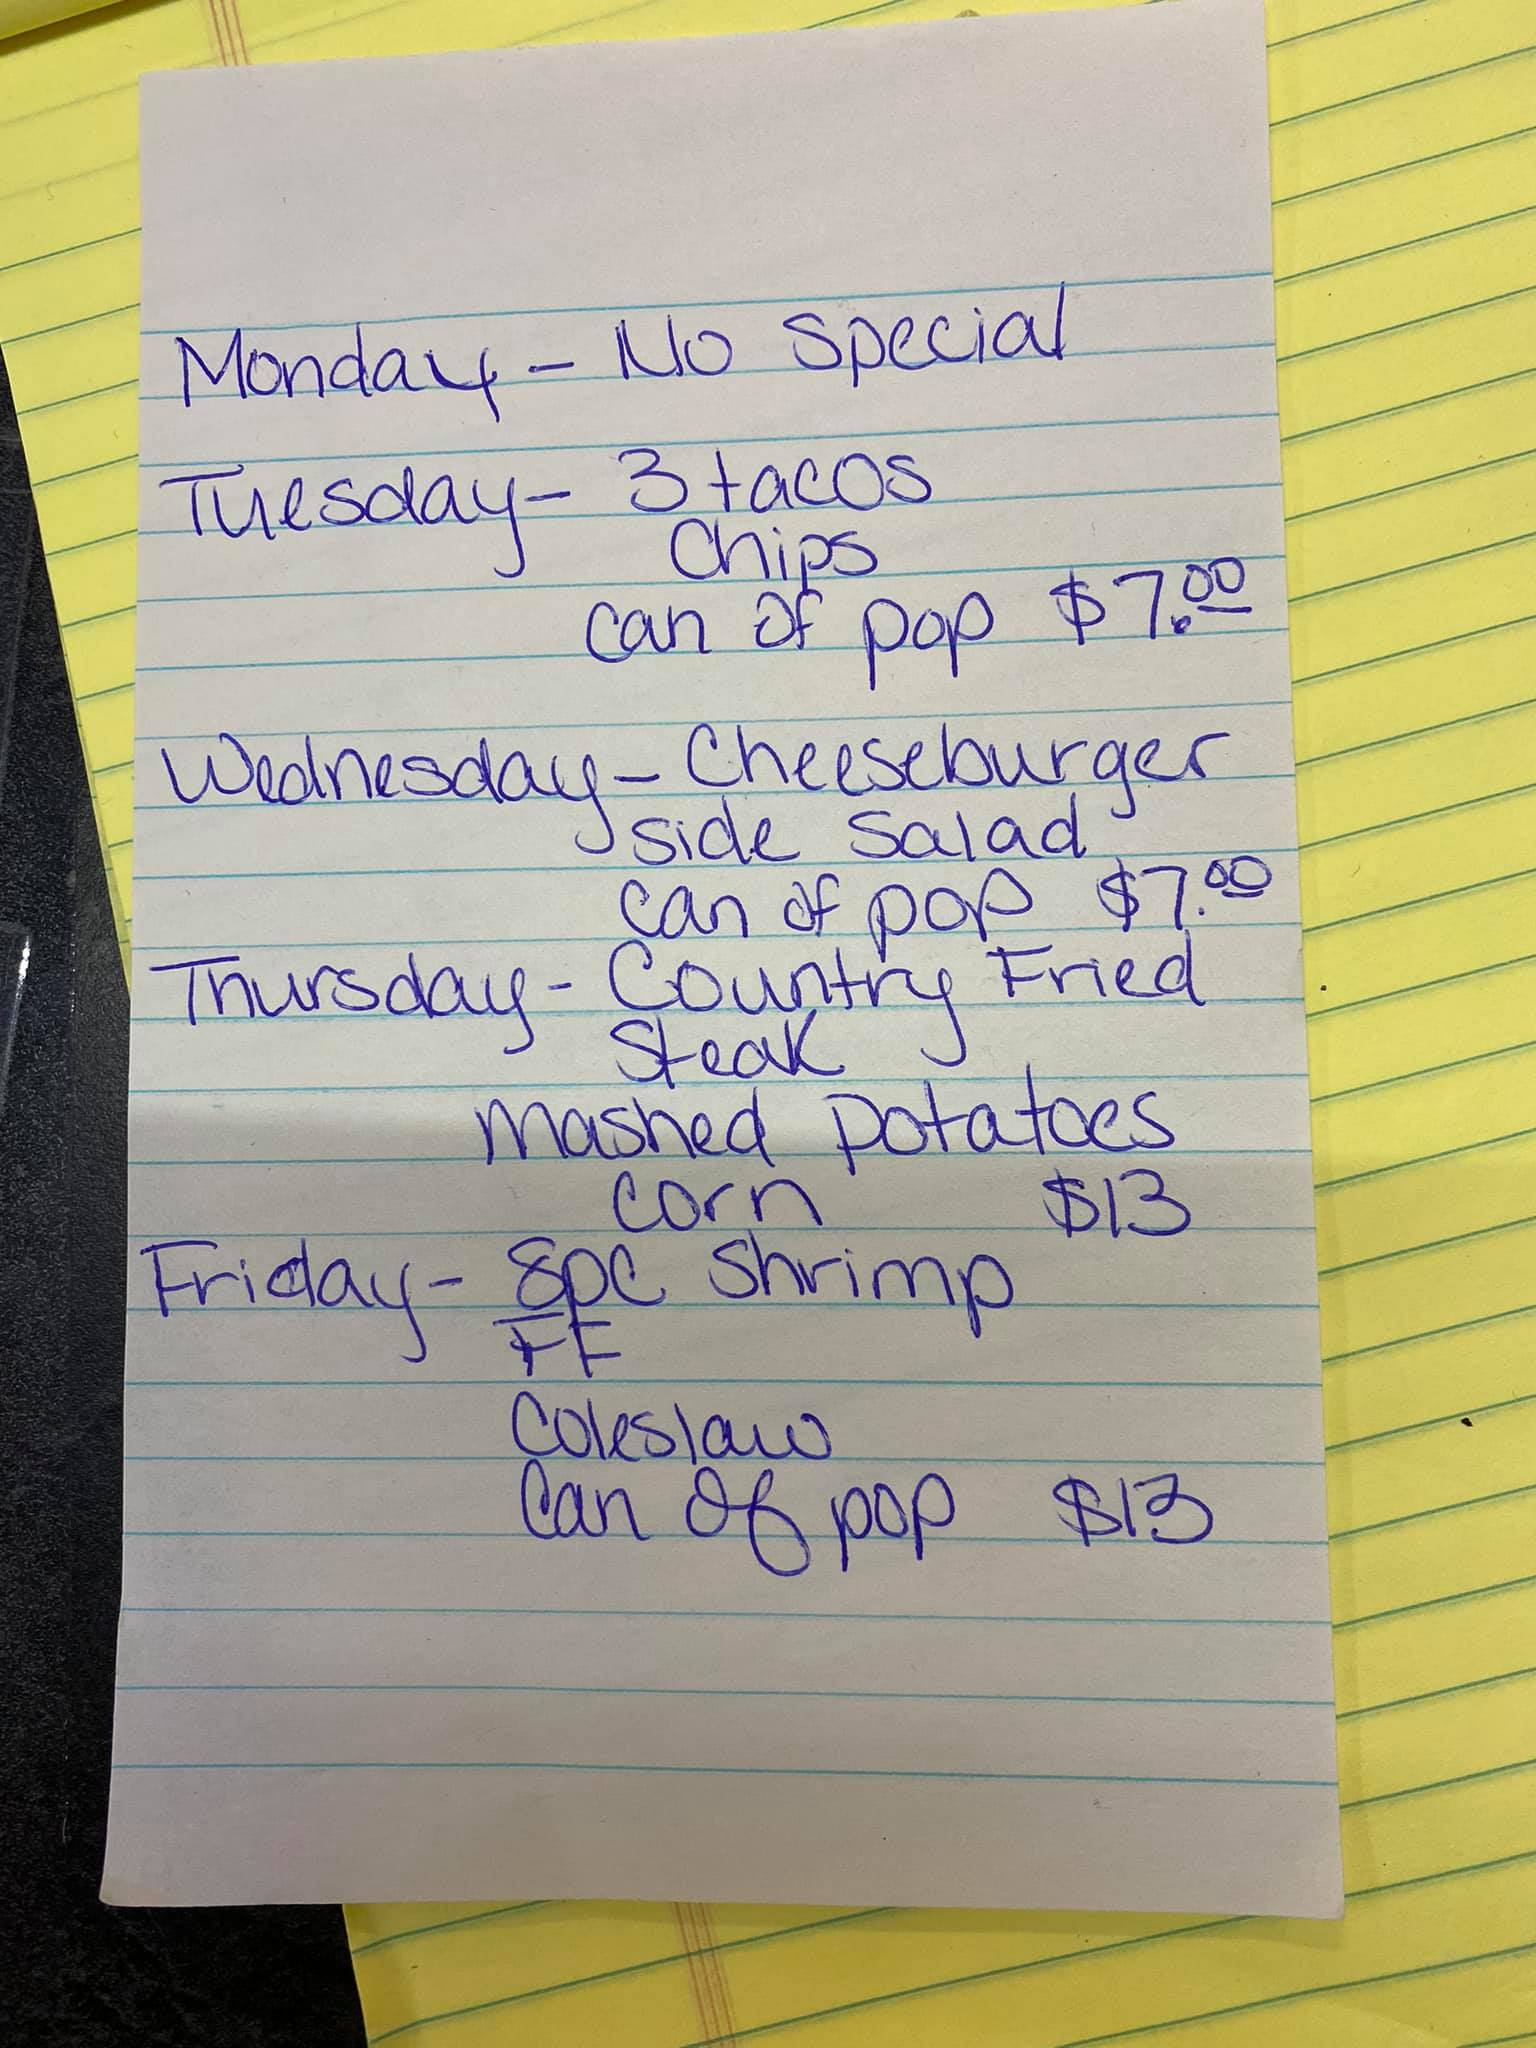 Monday - No Special
Tuesday - 3 tacos
Chips
can of pop $7.00
Wednesday - Cheeseburger
side salad
can of pop $7.00
Thursday - Country Fried
Steak
mashed potatoes
corn $13
Friday - 8pc shrimp
FF
Coleslaw
Can of pop $13